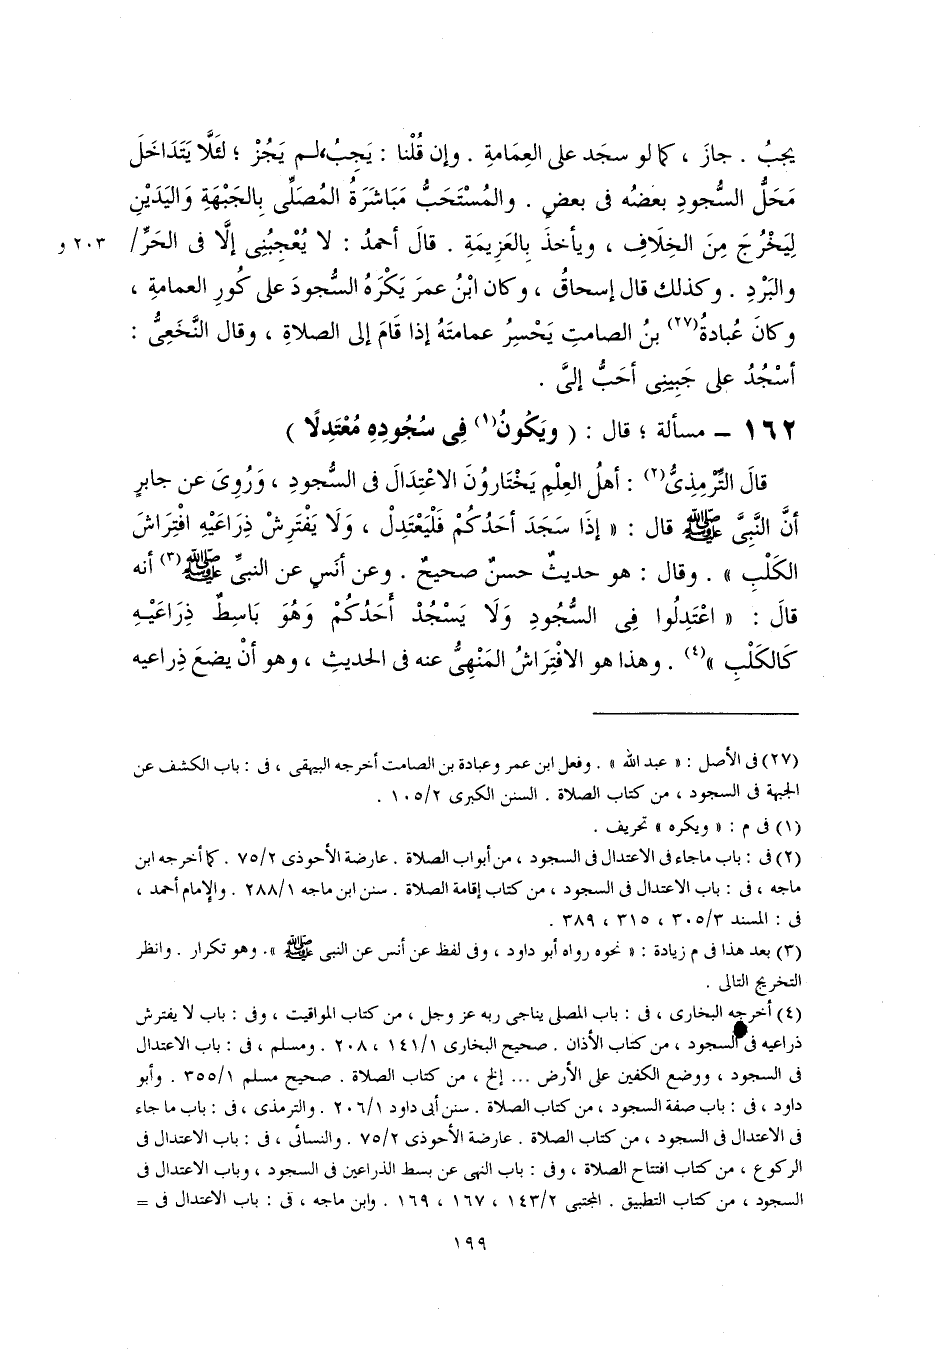 يجبُ . جازَ ، كما لو سجَد على العِمَامةِ . وإن قُلْنا : يَجِبُ، لم يَجُزْ ؛ لئَلَّا يَتَدَاخَلَ
مَحَلُّ السُّجودِ بعضُه فى بعضٍ . والمُسْتَحَبُّ مَبَاشَرَةُ المُصَلِّى بِالجَبْهَةِ وَاليَدَيْنِ
لِيَخْرُجَ مِنَ الخِلَافِ ، ويأخذَ بِالعَزِيمَةِ . قالَ أحمدُ : لا يُعْجِبُنِى إلَّا فى الحَرِّ/ ٢٠٣ و
والبَرْدِ . وكذلك قال إسحاقُ ، وكان ابْنُ عمرَ يَكْرَهُ السُّجودَ على كُورِ العمامةِ ،
وكانَ عُبادةُ(٢٧) بنُ الصامتِ يَحْسِرُ عمامتَهُ إذا قَامَ إلى الصلاةِ ، وقال النَّخَعِىُّ :
أسْجُدُ على جَبِينِى أحَبُّ إلىَّ .
١٦٢ – مسألة ؛ قال : ( ويَكُونُ(١) فِى سُجُودِهِ مُعْتَدِلًا )
قالَ التِّرْمِذِىُّ(٢) : أهلُ العِلْمِ يَخْتَاروُنَ الاعْتِدَالَ فى السُّجودِ ، وَرُوِىَ عن جابرٍ
أنَّ النَّبِىَّ ﷺ قال : « إذَا سَجَدَ أحَدُكُمْ فَلْيَعْتَدِلْ ، وَلَا يَفْتَرِشْ ذِرَاعَيْهِ افْتِرَاشَ
الكَلْبِ » . وقال : هو حديثٌ حسنٌ صحيحٌ . وعن أنَسٍ عن النبىِّ ﷺ(٣) أنه
قالَ : « اعْتَدِلُوا فِى السُّجُودِ وَلَا يَسْجُدْ أَحَدُكُمْ وَهُوَ بَاسِطٌ ذِرَاعَيْهِ
كَالكَلْبِ »(٤) . وهذا هو الافْتِرَاشُ المَنْهِىُّ عنه فى الحديثِ ، وهو أنْ يضعَ ذِراعيه
(٢٧) فى الأصل : « عبد الله » . وفعل ابن عمر وعبادة بن الصامت أخرجه البيهقى ، فى : باب الكشف عن
الجبهة فى السجود ، من كتاب الصلاة . السنن الكبرى ٢/١٠٥ .
(١) فى م : « ويكره » تحريف .
(٢) فى : باب ماجاء فى الاعتدال فى السجود ، من أبواب الصلاة . عارضة الأحوذى ٢/٧٥ . كما أخرجه ابن
ماجه ، فى : باب الاعتدال فى السجود ، من كتاب إقامة الصلاة . سنن ابن ماجه ١/٢٨٨ . والإمام أحمد ،
فى : المسند ٣/٣٠٥ ، ٣١٥ ، ٣٨٩ .
(٣) بعد هذا فى م زيادة : « نحوه رواه أبو داود ، وفى لفظ عن أنس عن النبى ﷺ ». وهو تكرار . وانظر
التخريج التالى .
(٤) أخرجه البخارى ، فى : باب المصلى يناجى ربه عز وجل ، من كتاب المواقيت ، وفى : باب لا يفترش
ذراعيه فى السجود ، من كتاب الأذان . صحيح البخارى ١/١٤١ ، ٢٠٨ . ومسلم ، فى : باب الاعتدال
فى السجود ، ووضع الكفين على الأرض ... إلخ ، من كتاب الصلاة . صحيح مسلم ١/٣٥٥ . وأبو
داود ، فى : باب صفة السجود ، من كتاب الصلاة . سنن أبى داود ١/٢٠٦ . والترمذى ، فى : باب ما جاء
فى الاعتدال فى السجود ، من كتاب الصلاة . عارضة الأحوذى ٢/٧٥ . والنسائى ، فى : باب الاعتدال فى
الركوع ، من كتاب افتتاح الصلاة ، وفى : باب النهى عن بسط الذراعين فى السجود ، وباب الاعتدال فى
السجود ، من كتاب التطبيق . المجتبى ٢/١٤٣ ، ١٦٧ ، ١٦٩ . وابن ماجه ، فى : باب الاعتدال فى =
١٩٩